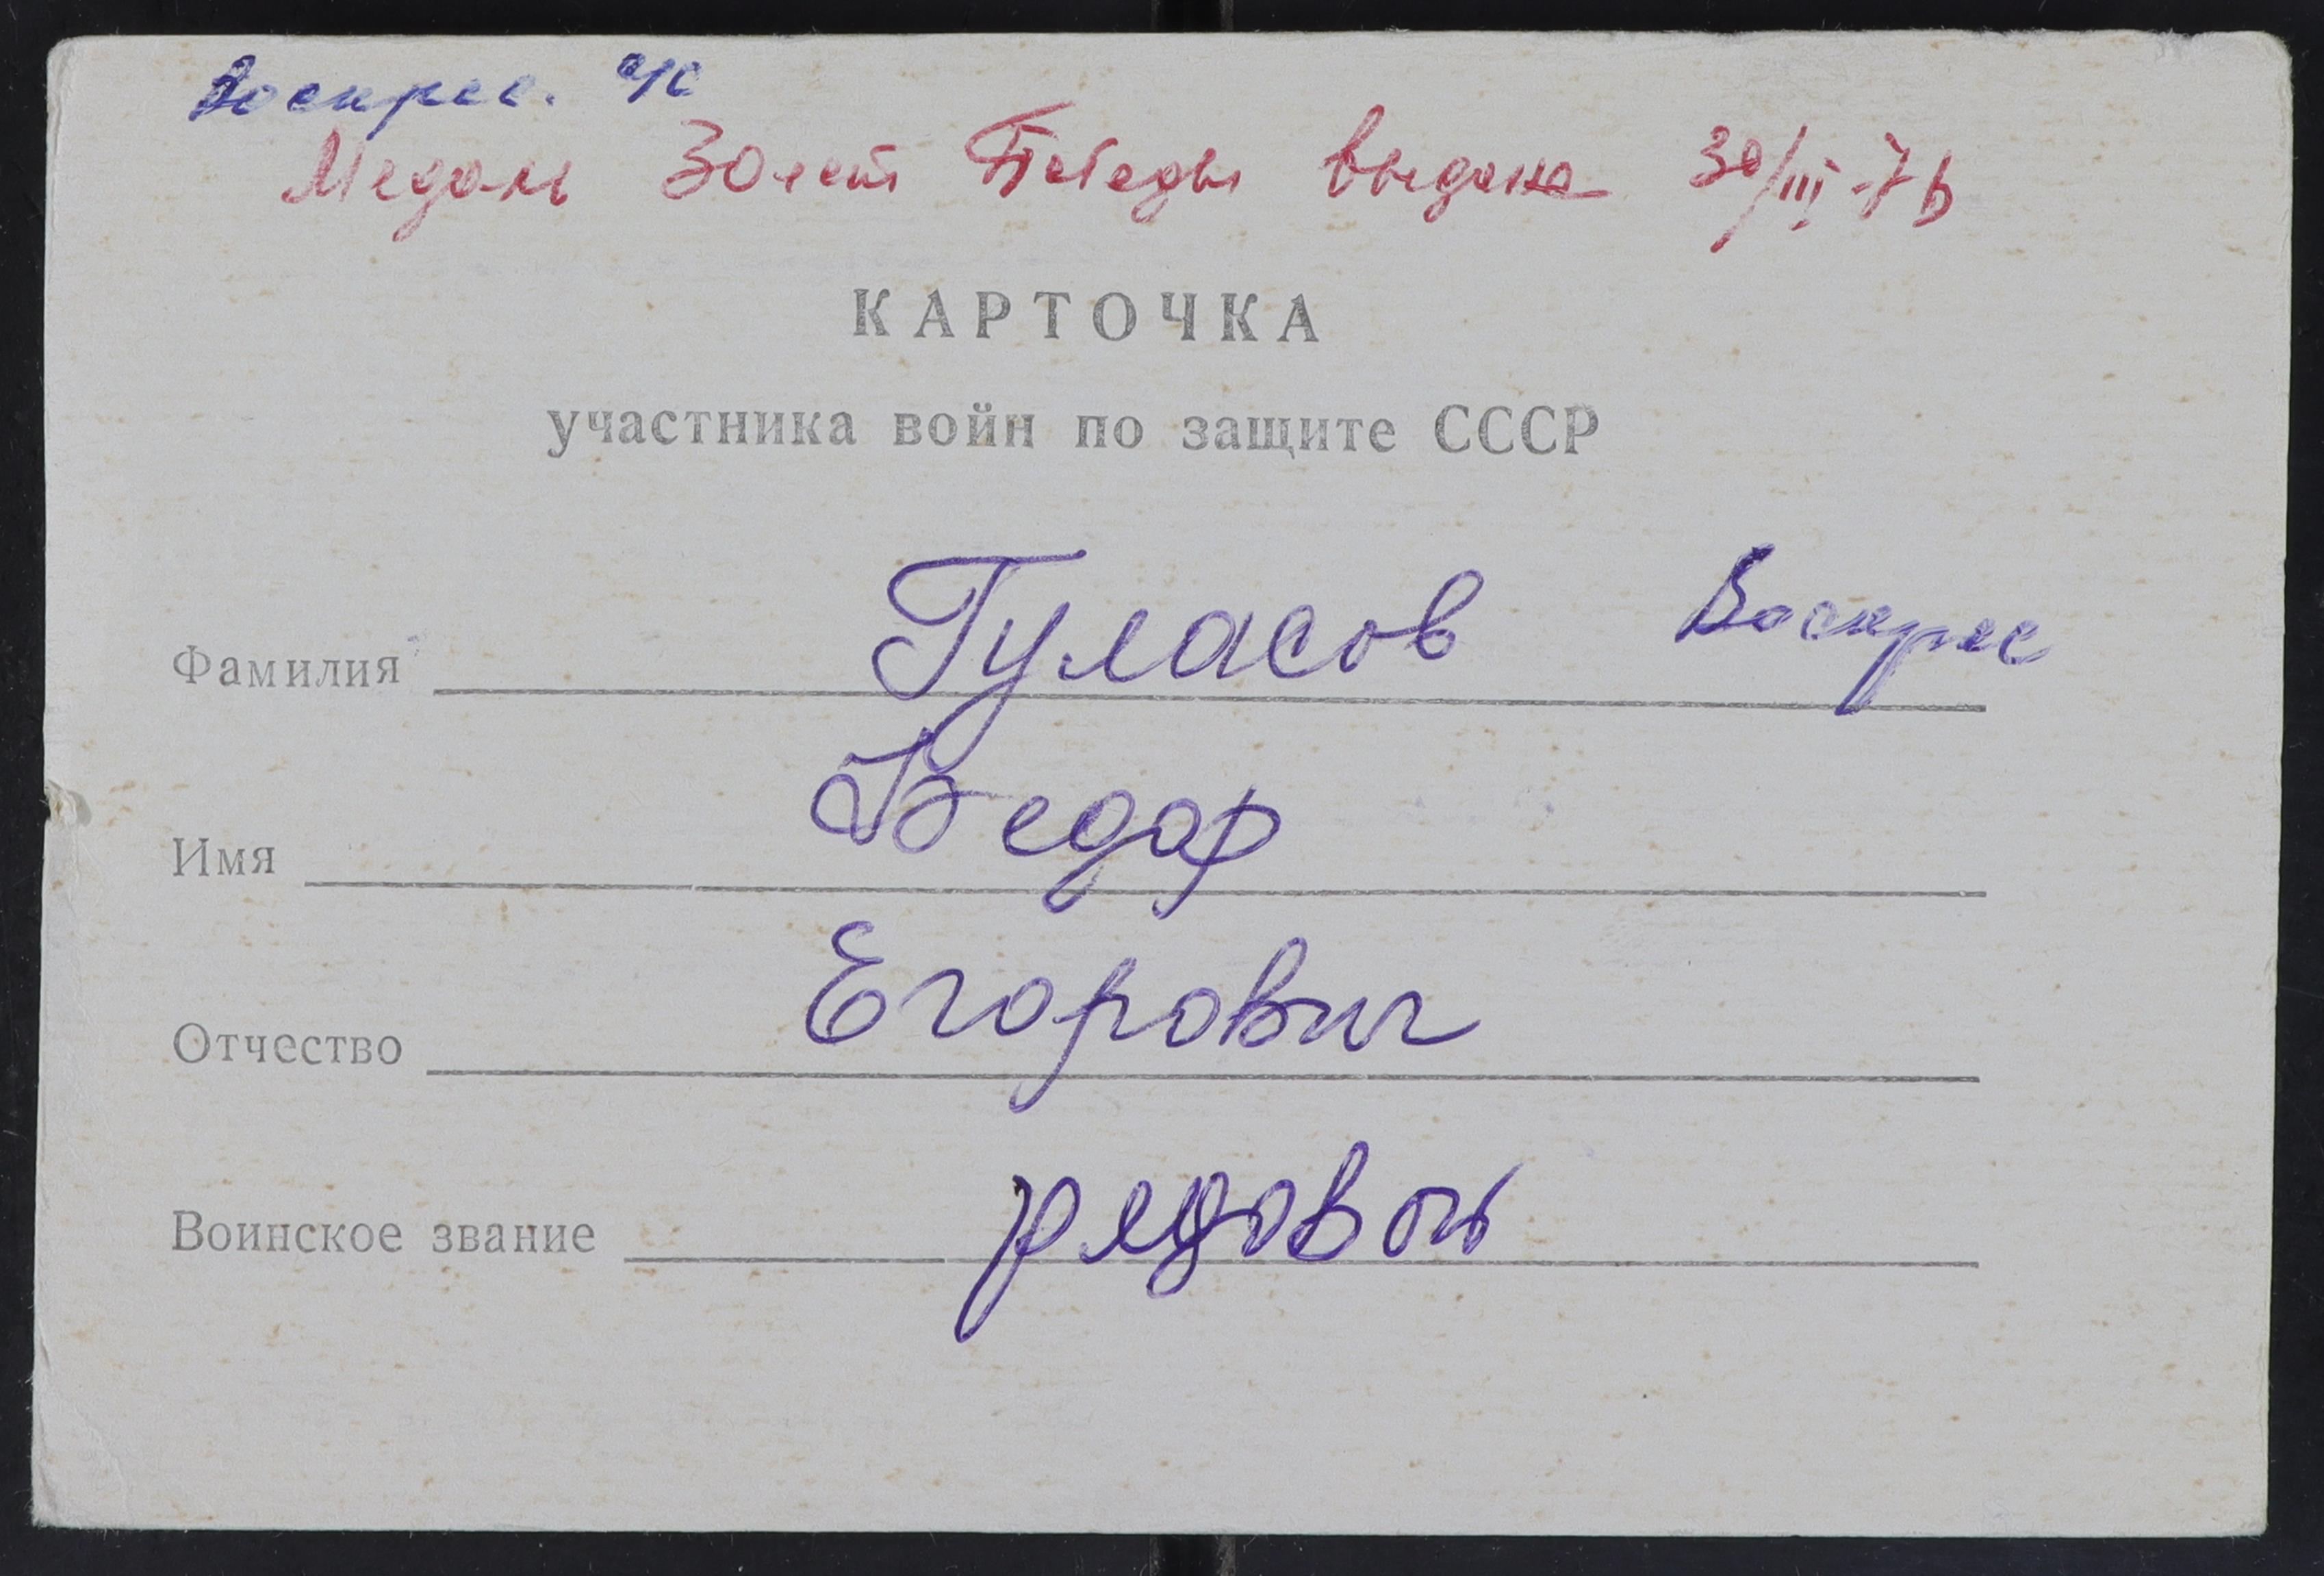 Воскрес. с/с
Медаль 30 лет Победы выдана 30/III-76
КАРТОЧКА
участника войн по защите СССР
Фамилия Гуласов Воскрес
Имя Федор
Отчество Егорович
Воинское звание рядовой